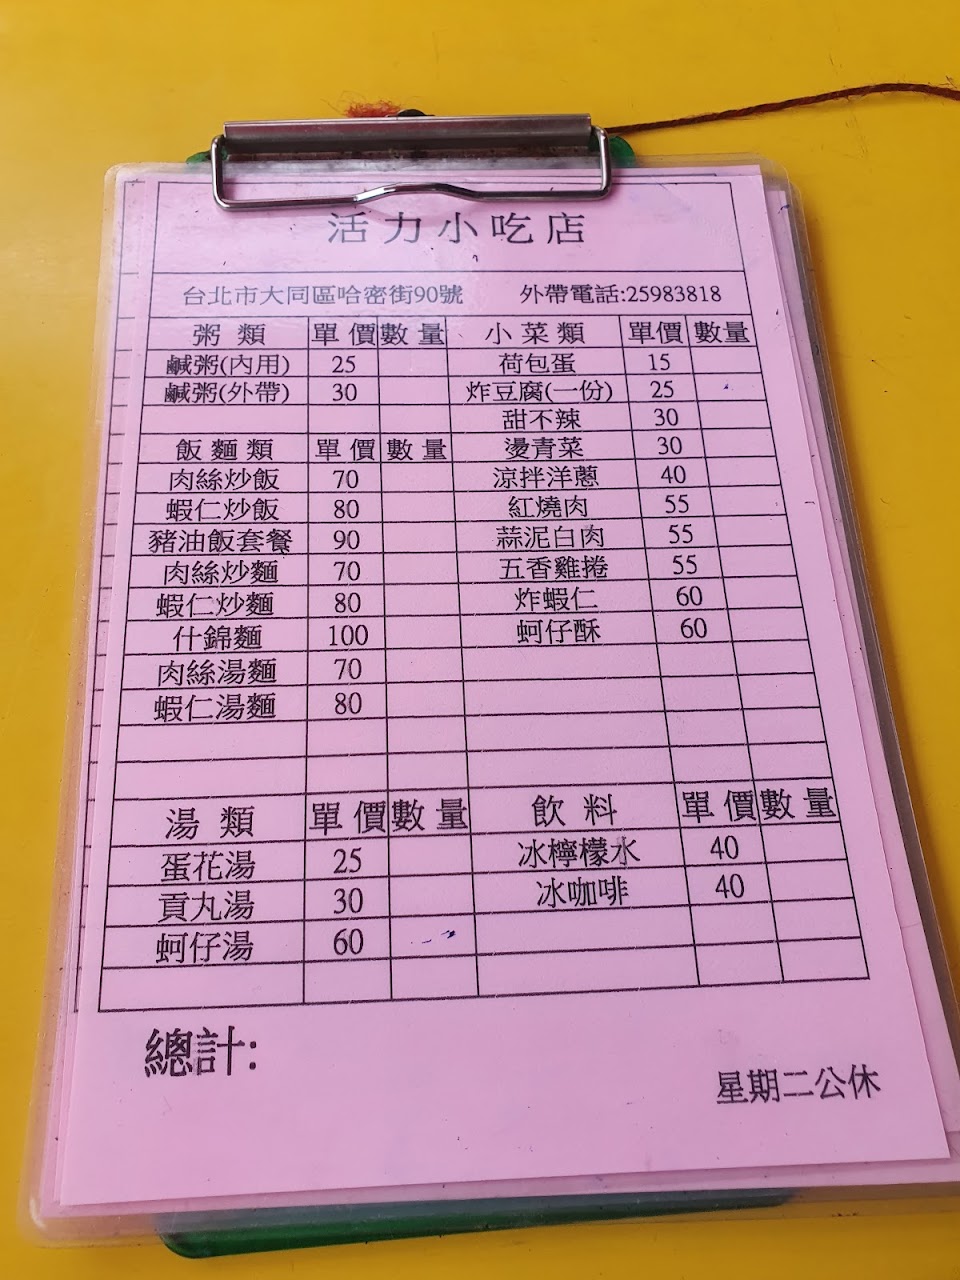 活力小吃店
台北市大同區哈密街90號 外帶電話:25983818
粥 類 單 價 數 量 小 菜 類 單價 數量
鹹粥(內用) 25 荷包蛋 15
鹹粥(外帶) 30 炸豆腐(一份) 25
甜不辣 30
飯 麵 類 單 價 數 量 燙青菜 30
肉絲炒飯 70 涼拌洋蔥 40
蝦仁炒飯 80 紅燒肉 55
豬油飯套餐 90 蒜泥白肉 55
肉絲炒麵 70 五香雞捲 55
蝦仁炒麵 80 炸蝦仁 60
什錦麵 100 蚵仔酥 60
肉絲湯麵 70
蝦仁湯麵 80
湯 類 單 價 數 量 飲 料 單 價 數 量
蛋花湯 25 冰檸檬水 40
貢丸湯 30 冰咖啡 40
蚵仔湯 60
總計:
星期二公休